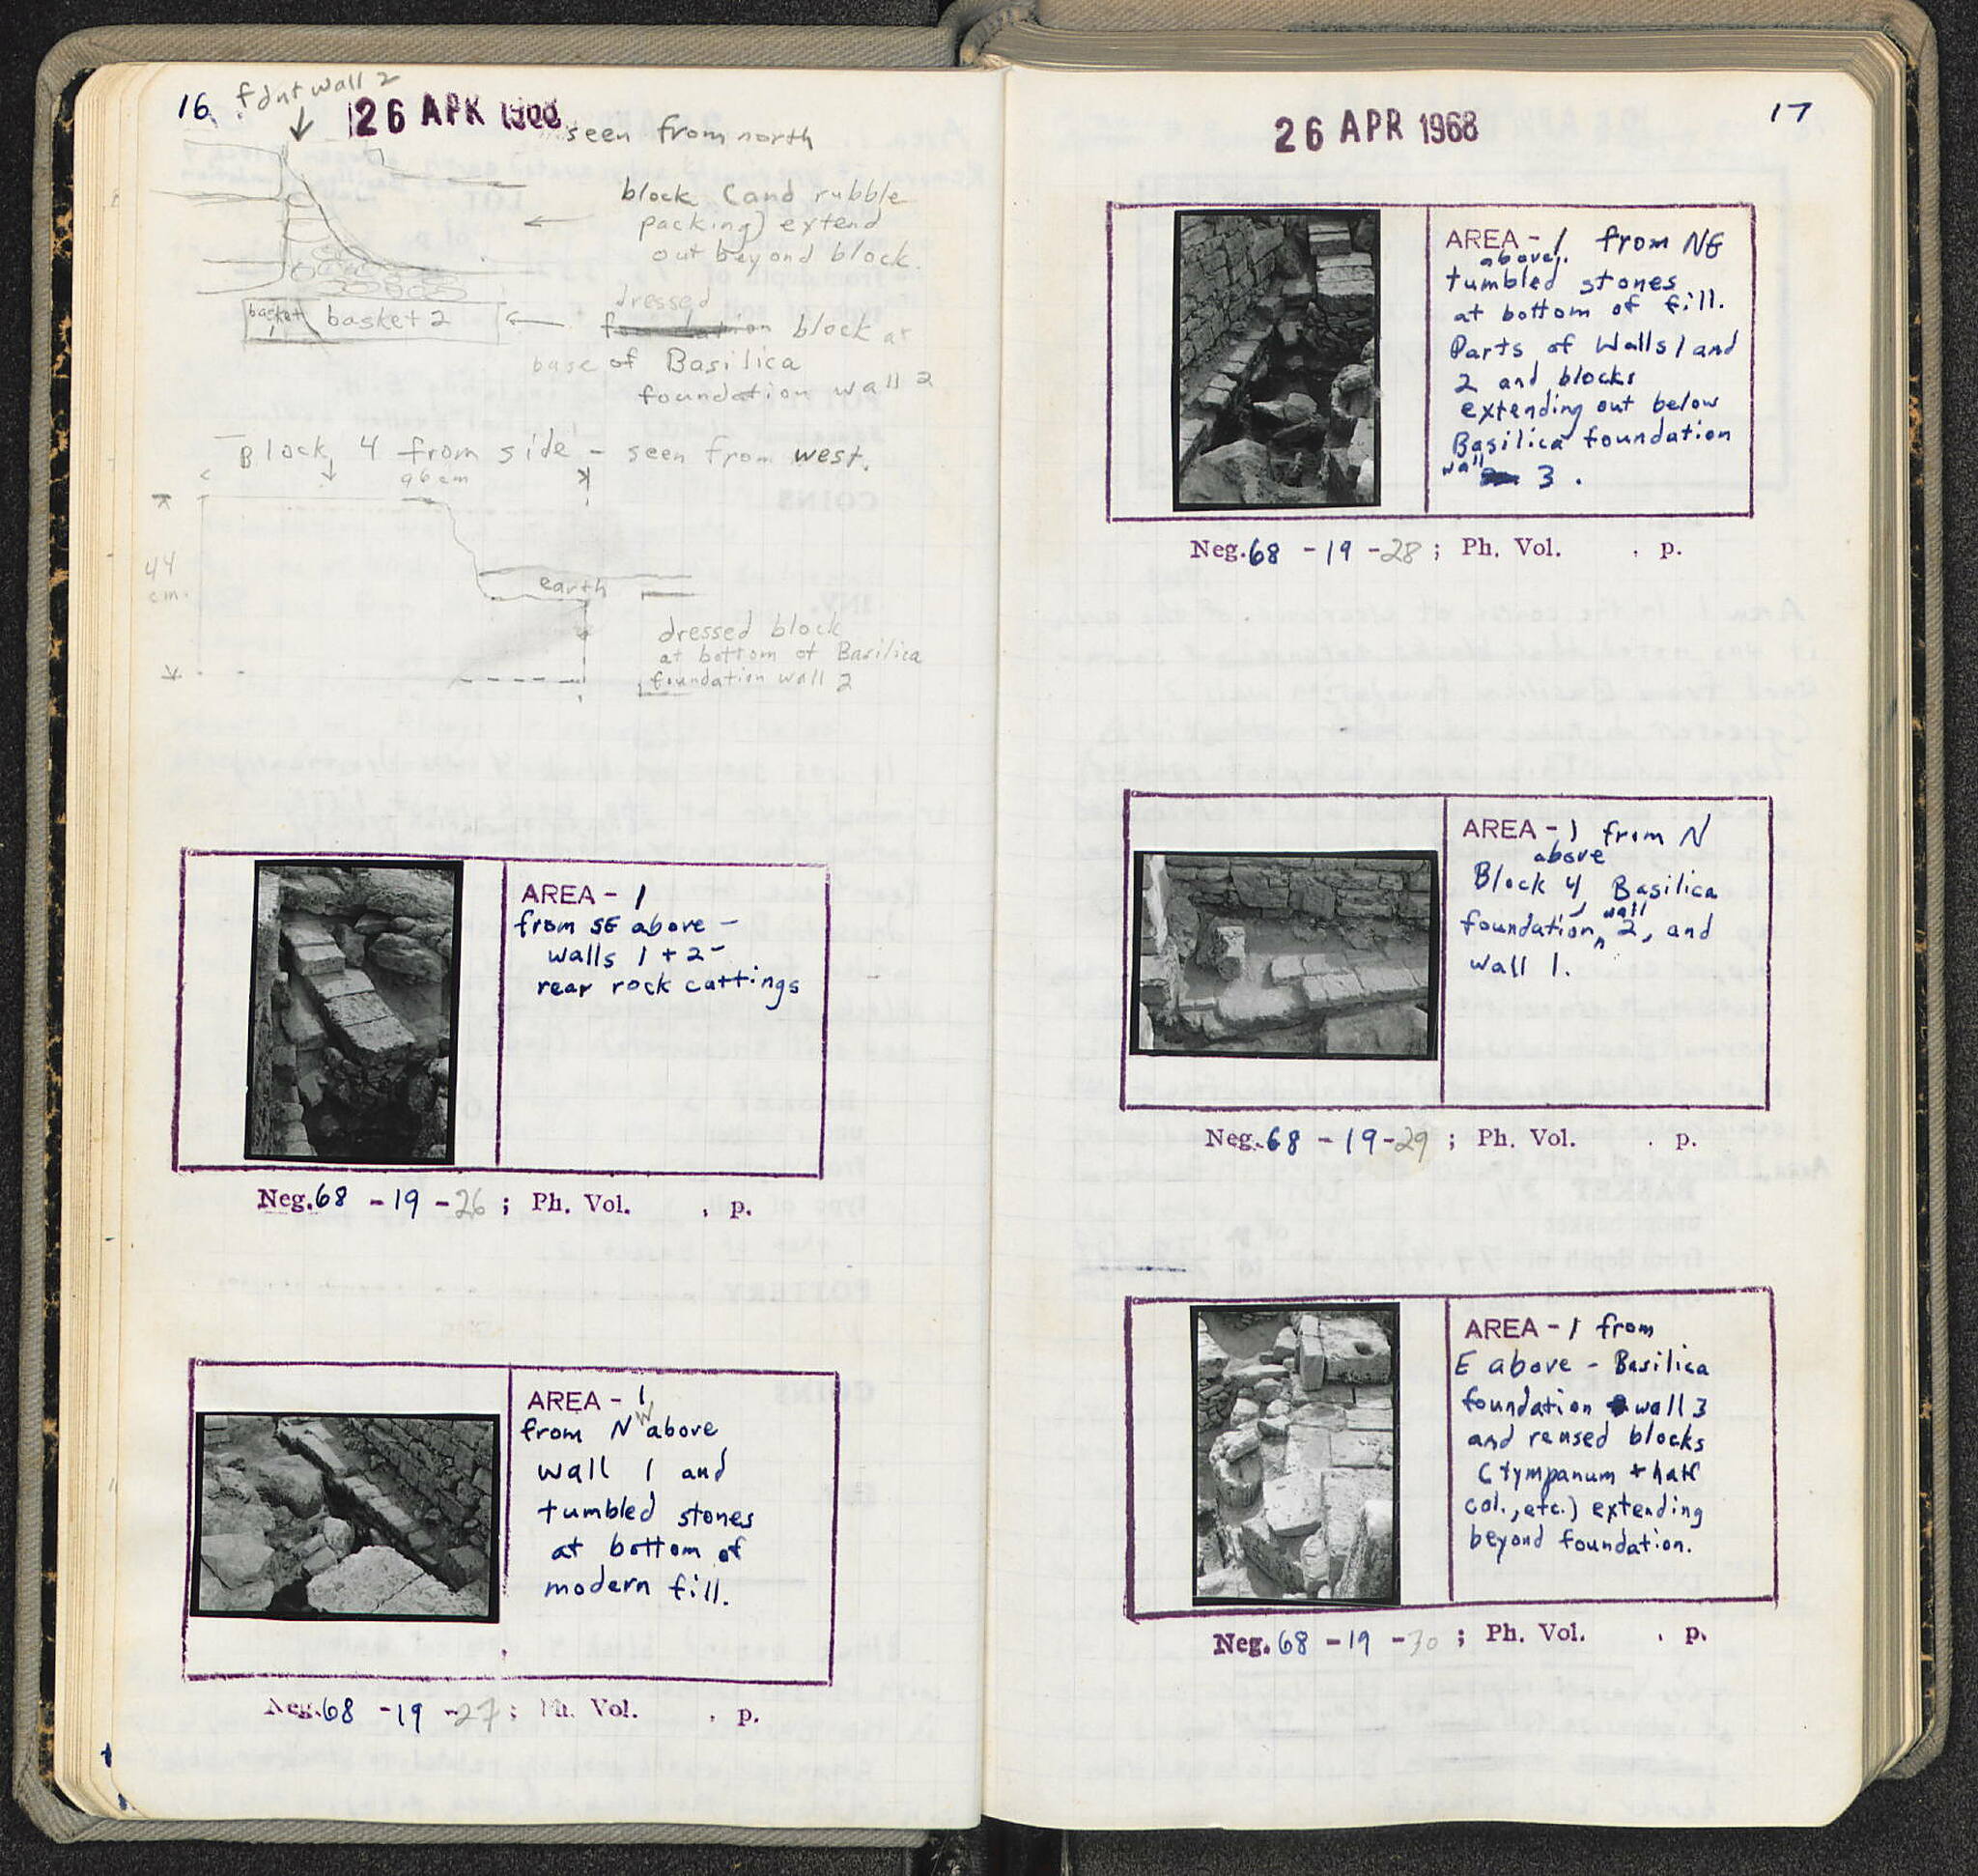 16
fdnt wall 2
26 APR 1968
seen from north
block (and rubble
packing) extend
out beyond block.
basket
1
basket 2
dressed
block at
base of Basilica
foundation wall 2
Block 4 from side - seen from west.
96 cm
44
cm.
earth
dressed block
at bottom of Basilica
foundation wall 2
AREA - 1
from SE above -
walls 1 + 2 -
rear rock cuttings
Neg. 68 - 19 - 26 ; Ph. Vol. , p.
AREA - 1
from NW above
wall 1 and
tumbled stones
at bottom of
modern fill.
Neg. 68 - 19 - 27 ; Ph. Vol. , p.
17
26 APR 1968
AREA - 1 from NE
above.
tumbled stones
at bottom of fill.
Parts of Walls 1 and
2 and blocks
extending out below
Basilica foundation
wall 3.
Neg. 68 - 19 - 28 ; Ph. Vol. , p.
AREA - 1 from N
above
Block 4, Basilica
foundation wall 2, and
wall 1.
Neg. 68 - 19 - 29 ; Ph. Vol. , p.
AREA - 1 from
E above - Basilica
foundation wall 3
and reused blocks
(tympanum + half
col., etc.) extending
beyond foundation.
Neg. 68 - 19 - 30 ; Ph. Vol. , p.